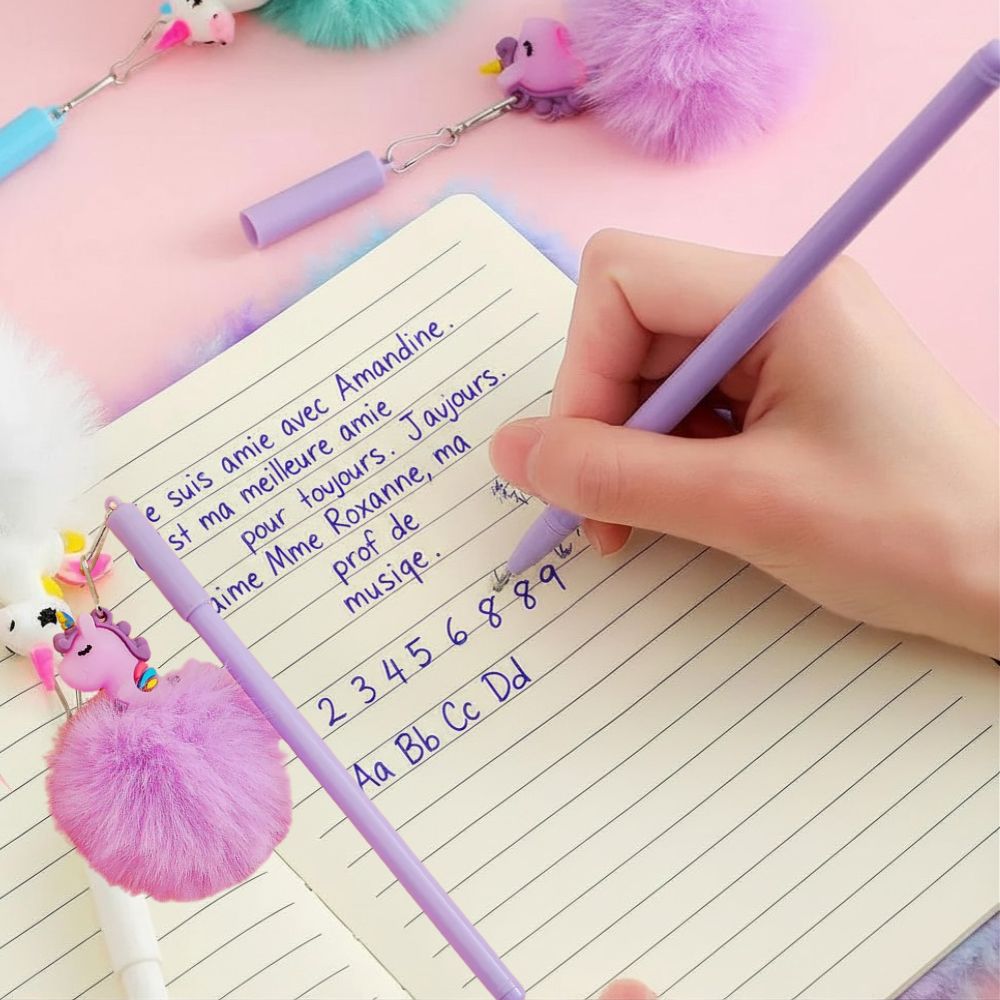 e suis amie avec Amandine.
st ma meilleure amie
pour toujours. Jaujours.
aime Mme Roxanne, ma
prof de
musiqe.
2 3 4 5 6 8 8 9
Aa Bb Cc Dd